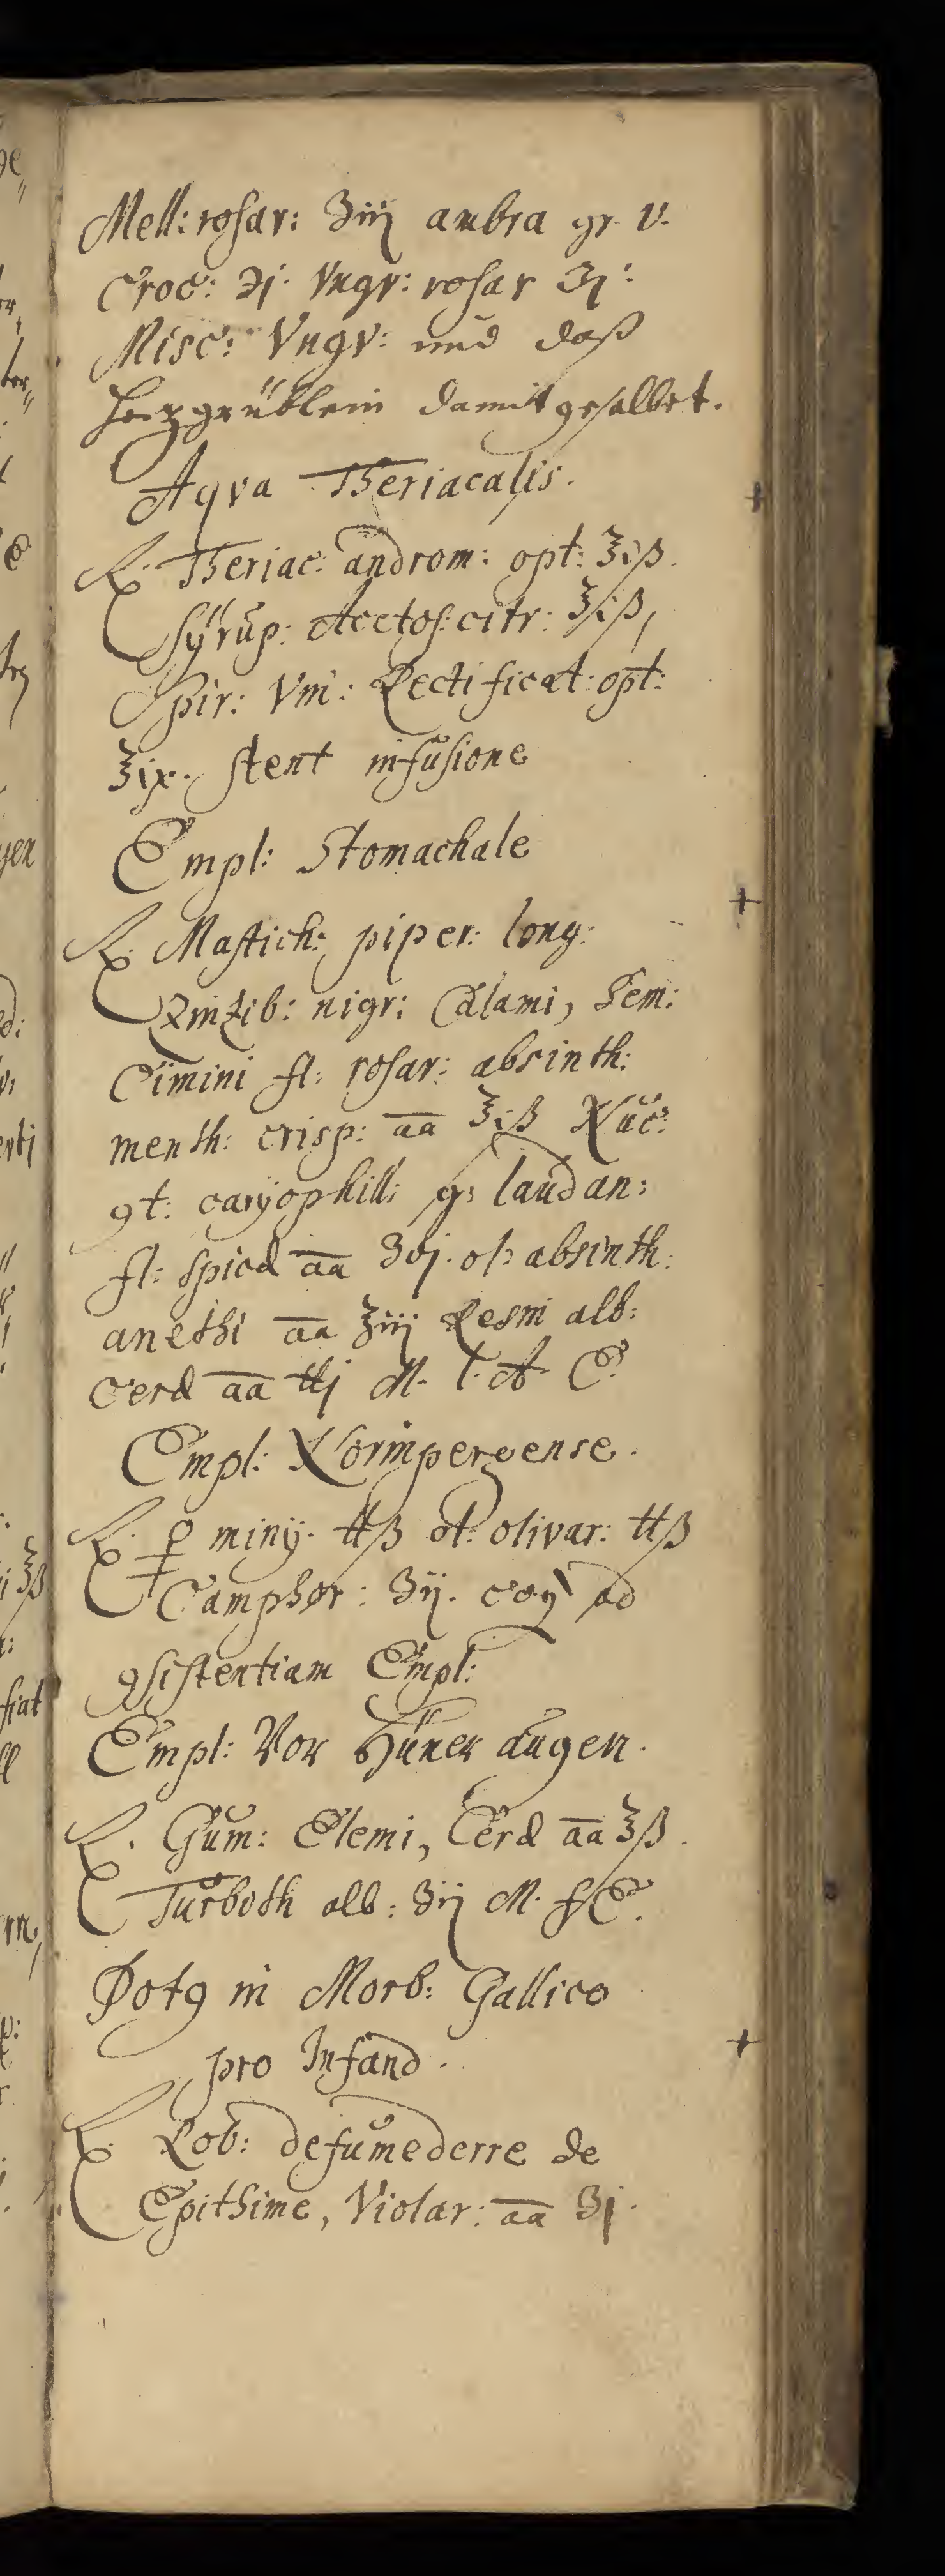 Mell: rosar: ʒiij ambra gr. v.
Croc: ℈j. Vngv: rosar ʒj:
Misc: Vngv: und daß
Herzgrüblein damit gesalbet.
Aqva Theriacalis.
℞. Theriac: androm: opt: ℥iß.
Syrup: Acetos: citr: ℥iß,
Spir: Vini: Rectificat: opt:
℥ix. stent infusione
Empl: Stomachale
℞. Mastich: piper: long:
Zinzib: nigr: Calami, Sem:
Cimini fl: rosar: absinth:
menth: crisp: aa ℥iß Nuc:
ꝯt: caryophill: g: laudan:
fl: spicæ aa ʒvj. ol: absinth:
anethi aa ℥iij Resin alb:
Ceræ aa ℔j M. l. A. E.
Empl: Norimpergense.
℞. ♀ minij. ℔ß ol: olivar: ℔ß
Camphor: ʒij. coq ad
ꝯsistentiam Empl:
Empl: Vor Hüner augen.
℞. Gum: Elemi, Ceræ aa ℥ß.
Turbith alb: ʒij M. f E.
Potꝯ in Morb: Gallico
pro Infand.
℞. Rob: defumederre de
Epithime, Violar: aa ʒj.